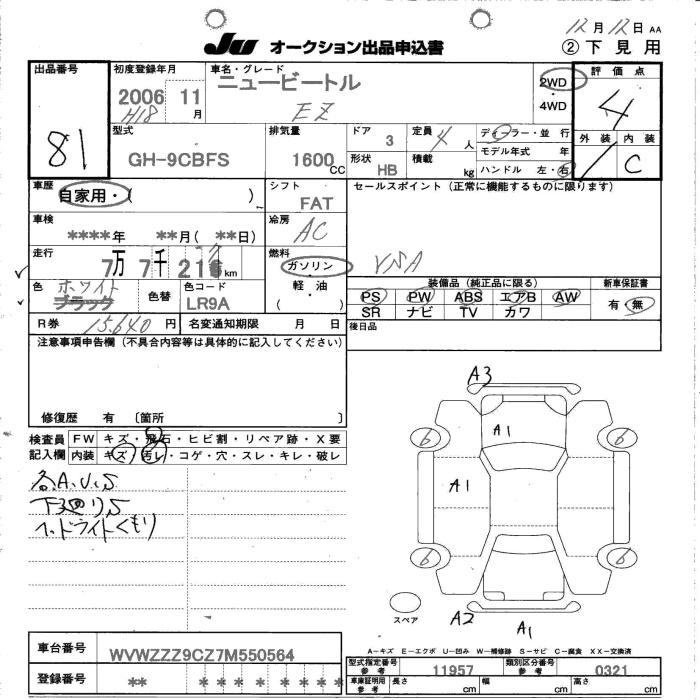 12月12日 AA
JU オークション出品申込書 ②下見用
出品番号 初度登録年月 車名・グレード 評価点
81 2006 11月 ニュービートル 2WD・4WD 4
H18 EZ
型式 排気量 ドア 定員 ディーラー・並行 外装 内装
GH-9CBFS 1600CC 3 4人 モデル年式 年 C
形状 HB 積載 kg ハンドル 左・右
車歴 自家用・( ) シフト FAT セールスポイント(正常に機能するものに限ります)
車検 ****年 **月(**日) 冷房 AC
走行 7万 7千 21 km 燃料 ガソリン・軽油・( )
色 ホワイト ブラック 色替 色コード LR9A
装備品(純正品に限る) 新車保証書
PS PW ABS エアB AW 有・無
SR ナビ TV カワ
R券 15,640円 名変通知期限 月 日 後日品
注意事項申告欄(不具合内容等は具体的に記入してください)
修復歴 有 〔箇所 〕
検査員記入欄 FW キズ・飛石・ヒビ割・リペア跡・X要
内装 キズ・汚レ・コゲ・穴・スレ・キレ・破レ
各A.U.S
下廻りS
ヘッドライトくもり
A3
A1
6 6
A1
6 6
スペア A2 A1
A-キズ E-エクボ U-凹み W-補修跡 S-サビ C-腐食 XX-交換済
車台番号 WVWZZZ9CZ7M550564
型式指定番号 参考 11957 類別区分番号 参考 0321
登録番号 ** * * * * * * * *
車庫証明用 参考 長さ cm 幅 cm 高さ cm